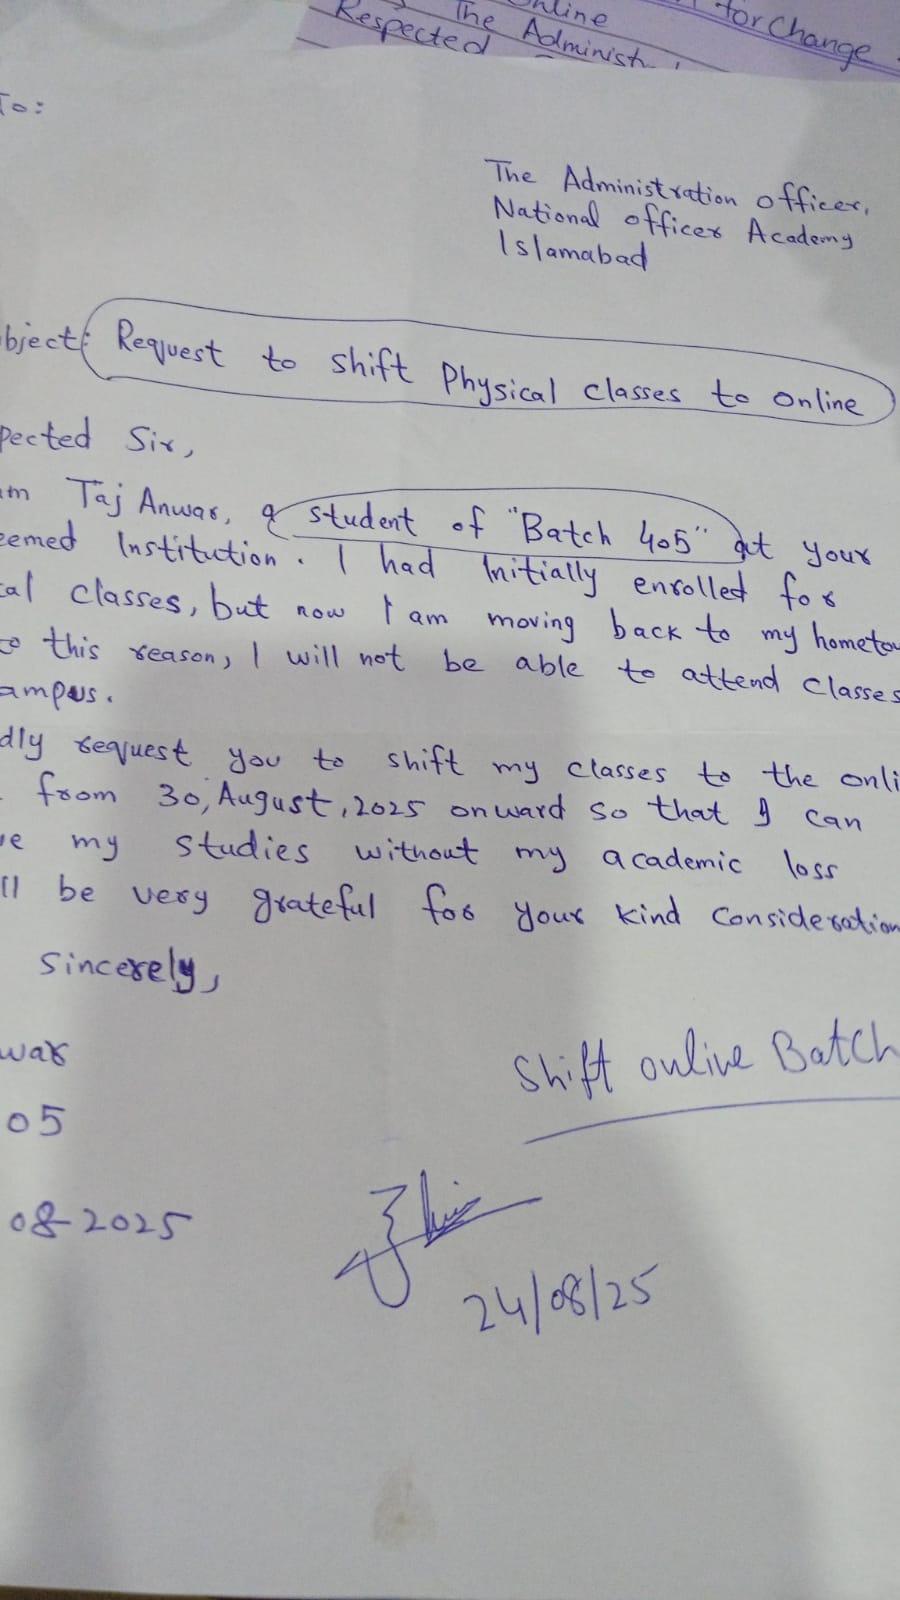 for Change
Online
The Administ
Respected
To:
The Administration officer,
National officer Academy
Islamabad
bject: Request to shift Physical classes to online
pected Sir,
am Taj Anwar, a student of "Batch 405" at your
eemed Institution. I had Initially enrolled for
cal classes, but now I am moving back to my hometow
to this reason, I will not be able to attend classes
ampus.
dly request you to shift my classes to the onli
from 30, August, 2025 onward so that I can
ue my studies without my academic loss
ll be very grateful for your kind Consideration
Sincerely,
war
Shift online Batch
05
08-2025
24/08/25